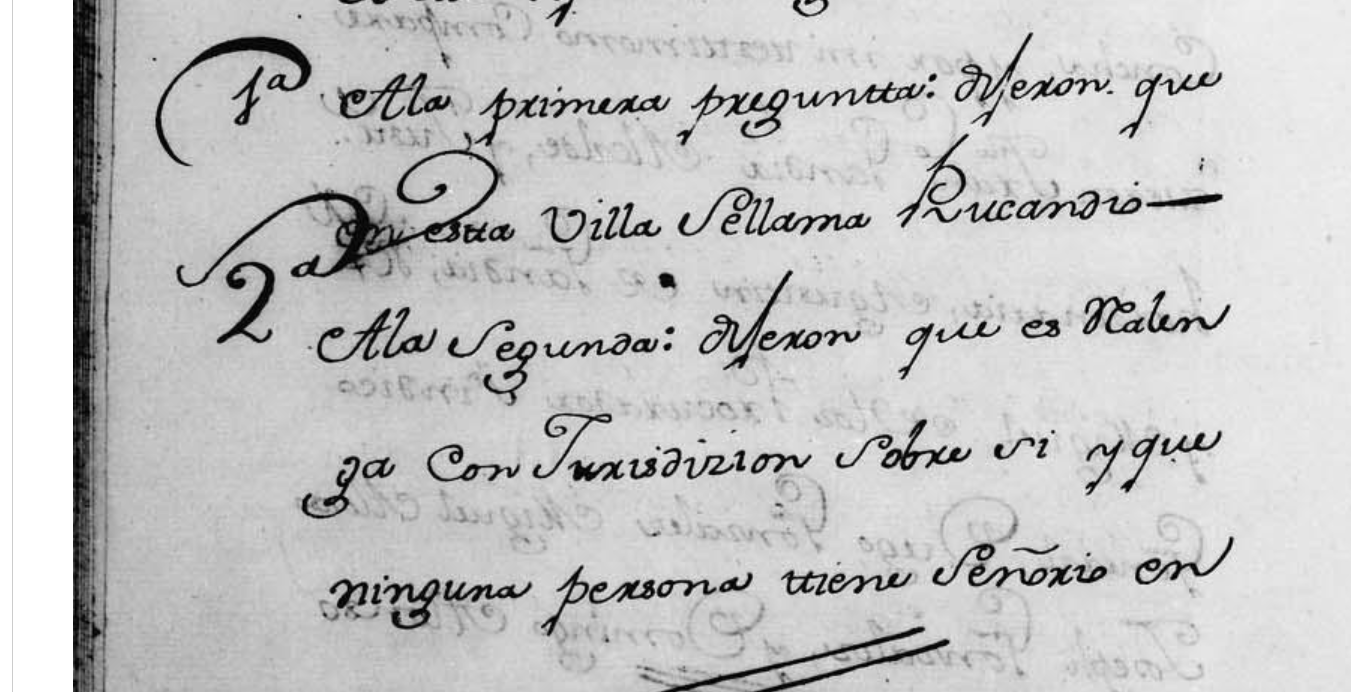 1ª Ala primera preguntta: dixeron. que
en estta Villa Sellama Rucandio—
2ª Ala Segunda: dixeron que es Ralen
ga Con Jurisdizion Sobre si y que
ninguna persona ttiene Señorio en